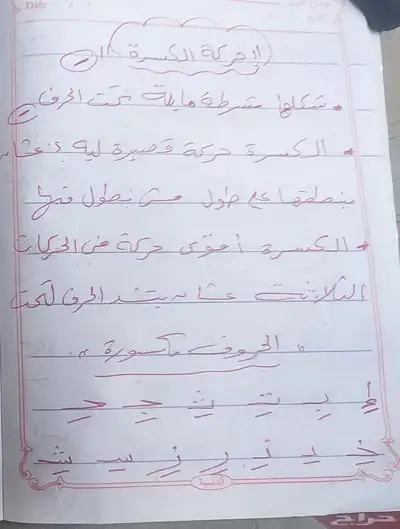 Date / /
(( حركة الكسرة ))
• شكلها شرطة مايلة تحت الحرف
• الكسرة حركة قصيرة ليه ؟ عشان
بنطقها على طول مش بنطول فيها
• الكسرة أقوى حركة من الحركات
الثلاثة عشان بتشد الحرف لتحت
" الحروف مكسورة "
إِ بِ تِ ثِ جِ حِ
خِ دِ ذِ رِ زِ سِ شِ
حراج